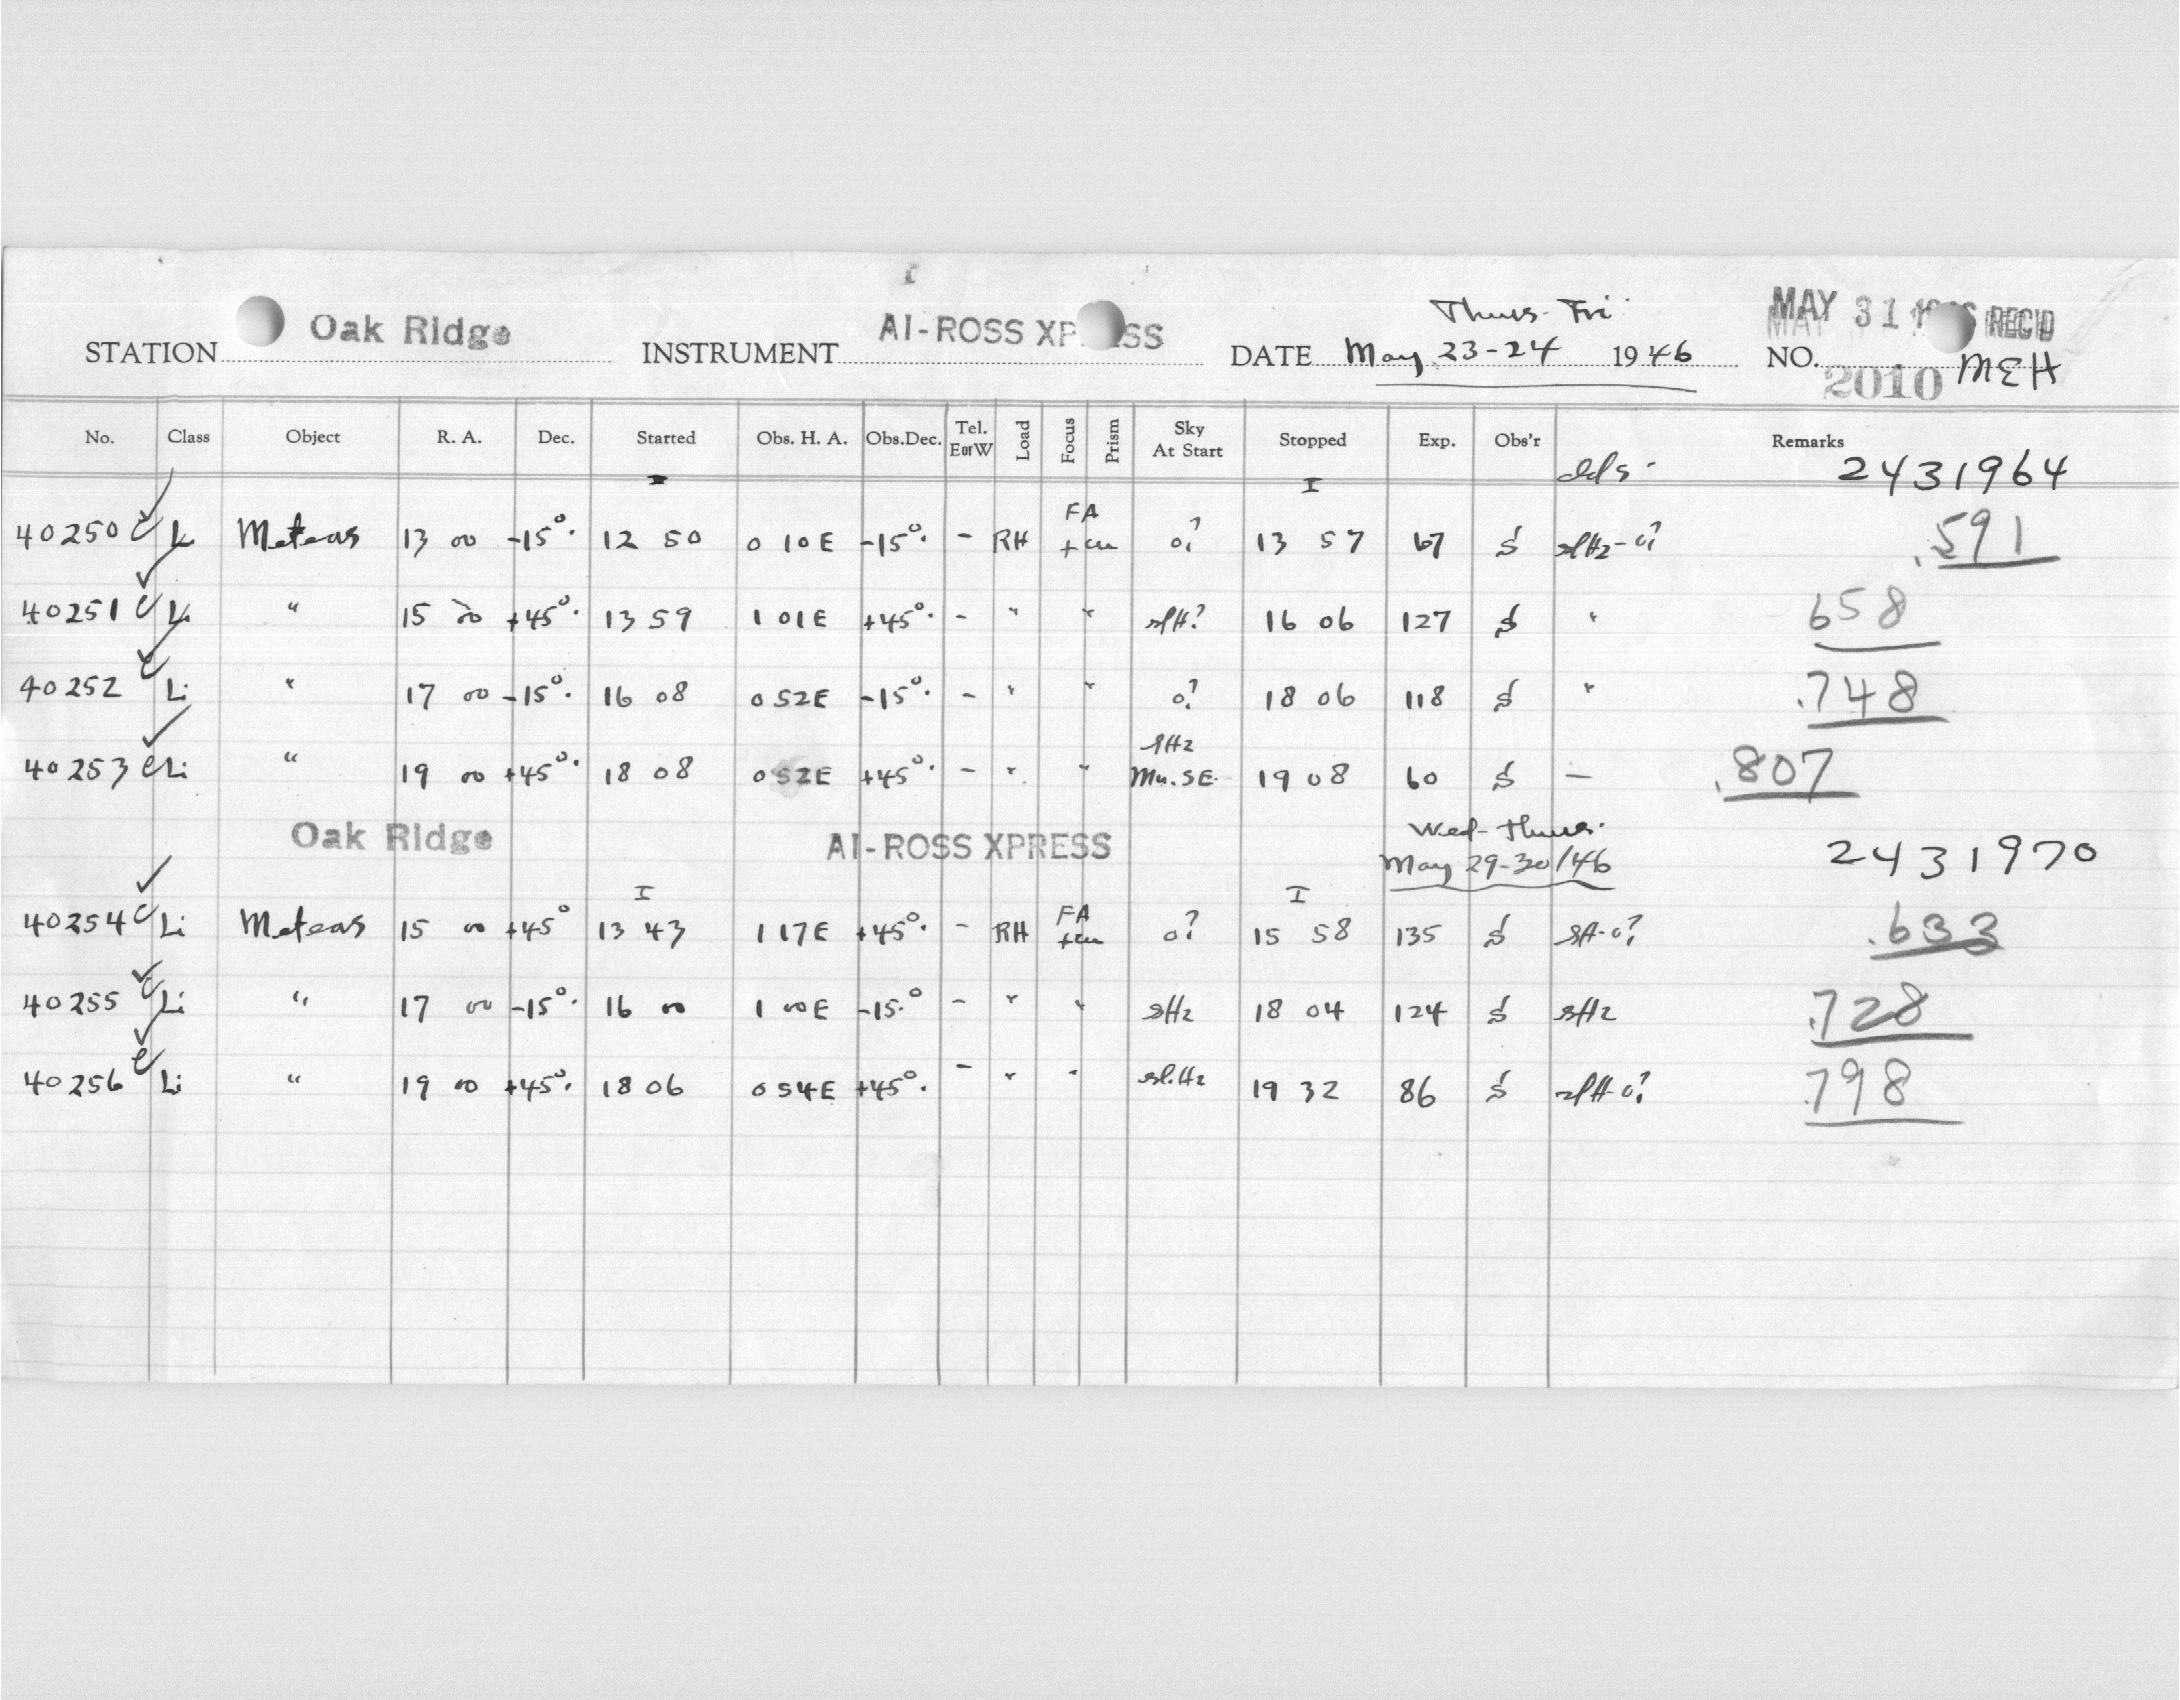 I
Thurs-Fri
MAY 31 REC'D
STATION Oak Ridge INSTRUMENT AI-ROSS XP SS DATE May 23-24 1946 NO. 2010 MEH
No. Class Object R. A. Dec. Started Obs. H. A. Obs.Dec. Tel. E or W Load Focus Prism Sky At Start Stopped Exp. Obs'r Remarks
I I 2431964
40250 c Li Meteors 13 00 -15°. 12 50 0 10E -15°. - RH FA +cm o? 13 57 67 S slHz-o? .591
40251 c Li " 15 00 +45°. 13 59 1 01E +45°. - " " slH? 16 06 127 S " 658
40252 c Li " 17 00 -15°. 16 08 0 52E -15°. - " " o? 18 06 118 S " .748
40253 c Li " 19 00 +45°. 18 08 0 52E +45°. - " " slHz Mn.SE. 19 08 60 S — .807
Oak Ridge AI-ROSS XPRESS Wed-Thurs. May 29-30/46 2431970
I I
40254 c Li Meteors 15 00 +45° 13 43 1 17E +45°. - RH FA +cm o? 15 58 135 S slH-o? .633
40255 c Li " 17 00 -15°. 16 00 1 00E -15.° - " " sHz 18 04 124 S sHz .728
40256 c Li " 19 00 +45°. 18 06 0 54E +45°. - " " sl.Hz 19 32 86 S slH-o? .798